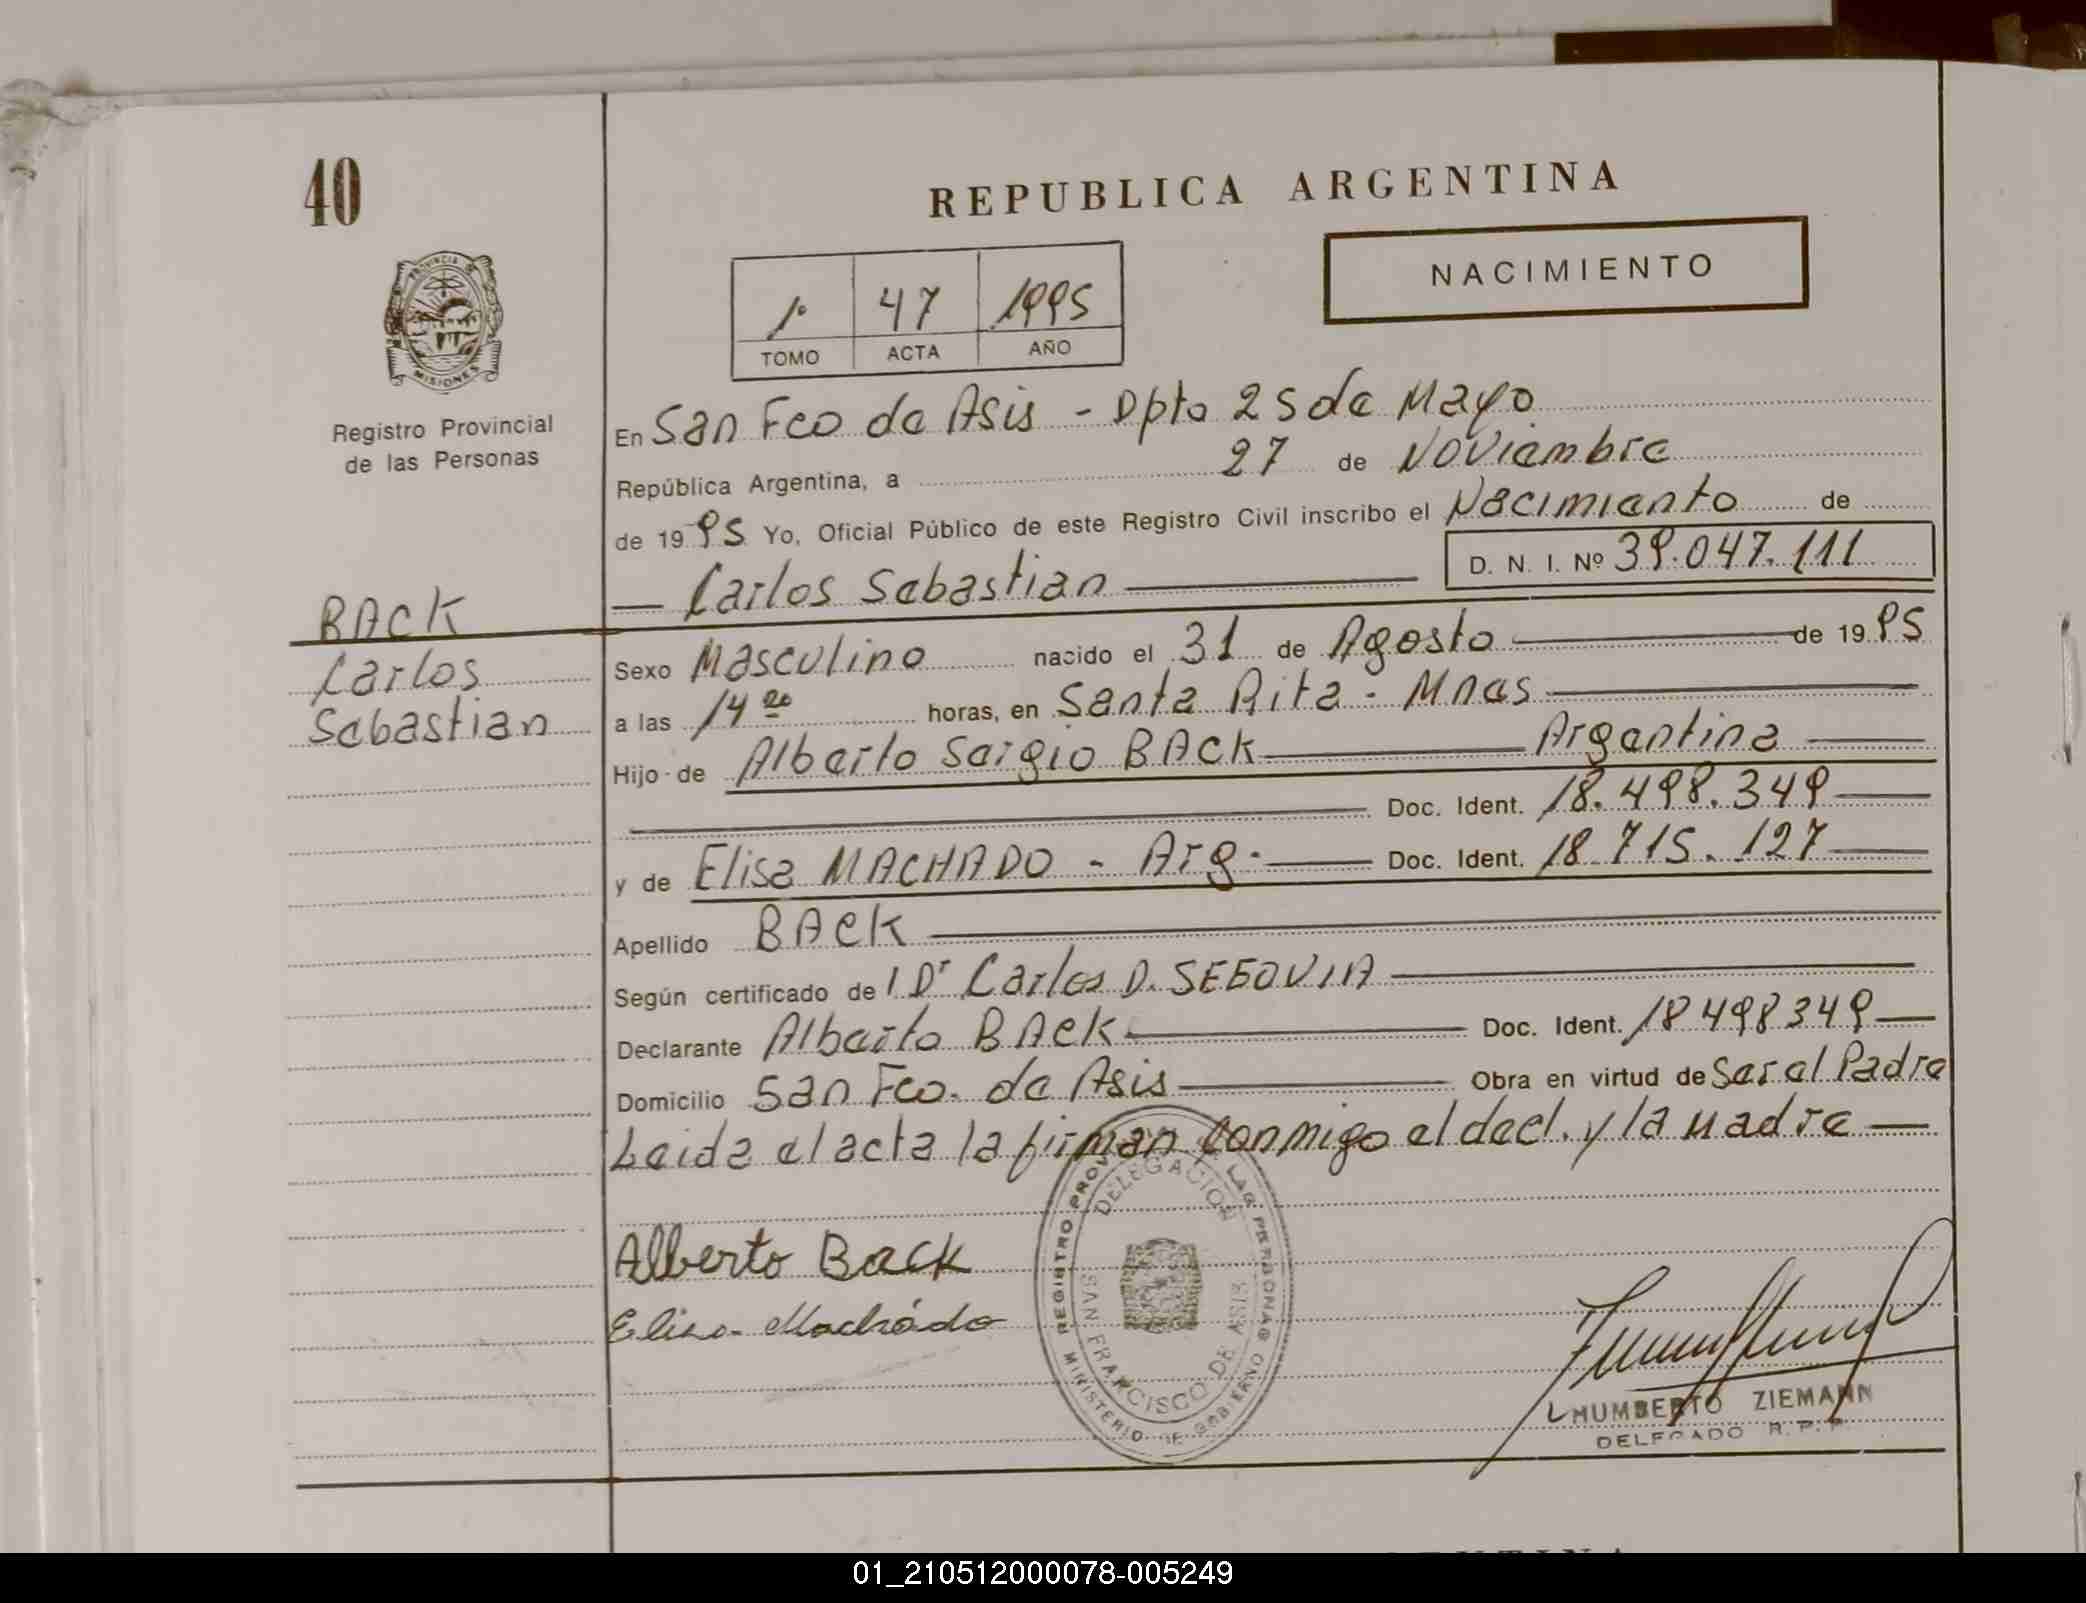 40
REPUBLICA ARGENTINA
NACIMIENTO
1º 47 1995
TOMO ACTA AÑO
PROVINCIA DE MISIONES
Registro Provincial
de las Personas
En San Fco de Asis - Dpto 25 de Mayo
República Argentina, a 27 de Noviembre
de 1995 Yo, Oficial Público de este Registro Civil inscribo el Nacimiento de
— Carlos Sebastian — D. N. I. Nº 39.047.111
BACK
Carlos
Sebastian
Sexo Masculino nacido el 31 de Agosto — de 1995
a las 14 20 horas, en Santa Rita - Mnes —
Hijo de Alberto Sergio BACK — Argentina —
— Doc. Ident. 18.498.349 —
y de Elisa MACHADO - Arg. — Doc. Ident. 18.715.127 —
Apellido BACK —
Según certificado de l Dr Carlos D. SEGOVIA —
Declarante Alberto BACK — Doc. Ident. 18498349 —
Domicilio San Fco. de Asis — Obra en virtud de Ser el Padre
Leida el acta la firman conmigo el decl. y la madre —
Alberto Back
Elisa Machado
REGISTRO PROV LAS PERSONAS
DELEGACION
SAN FRANCISCO DE ASIS
MINISTERIO DE GOBIERNO
HUMBERTO ZIEMANN
DELEGADO R.P.P.
01_210512000078-005249